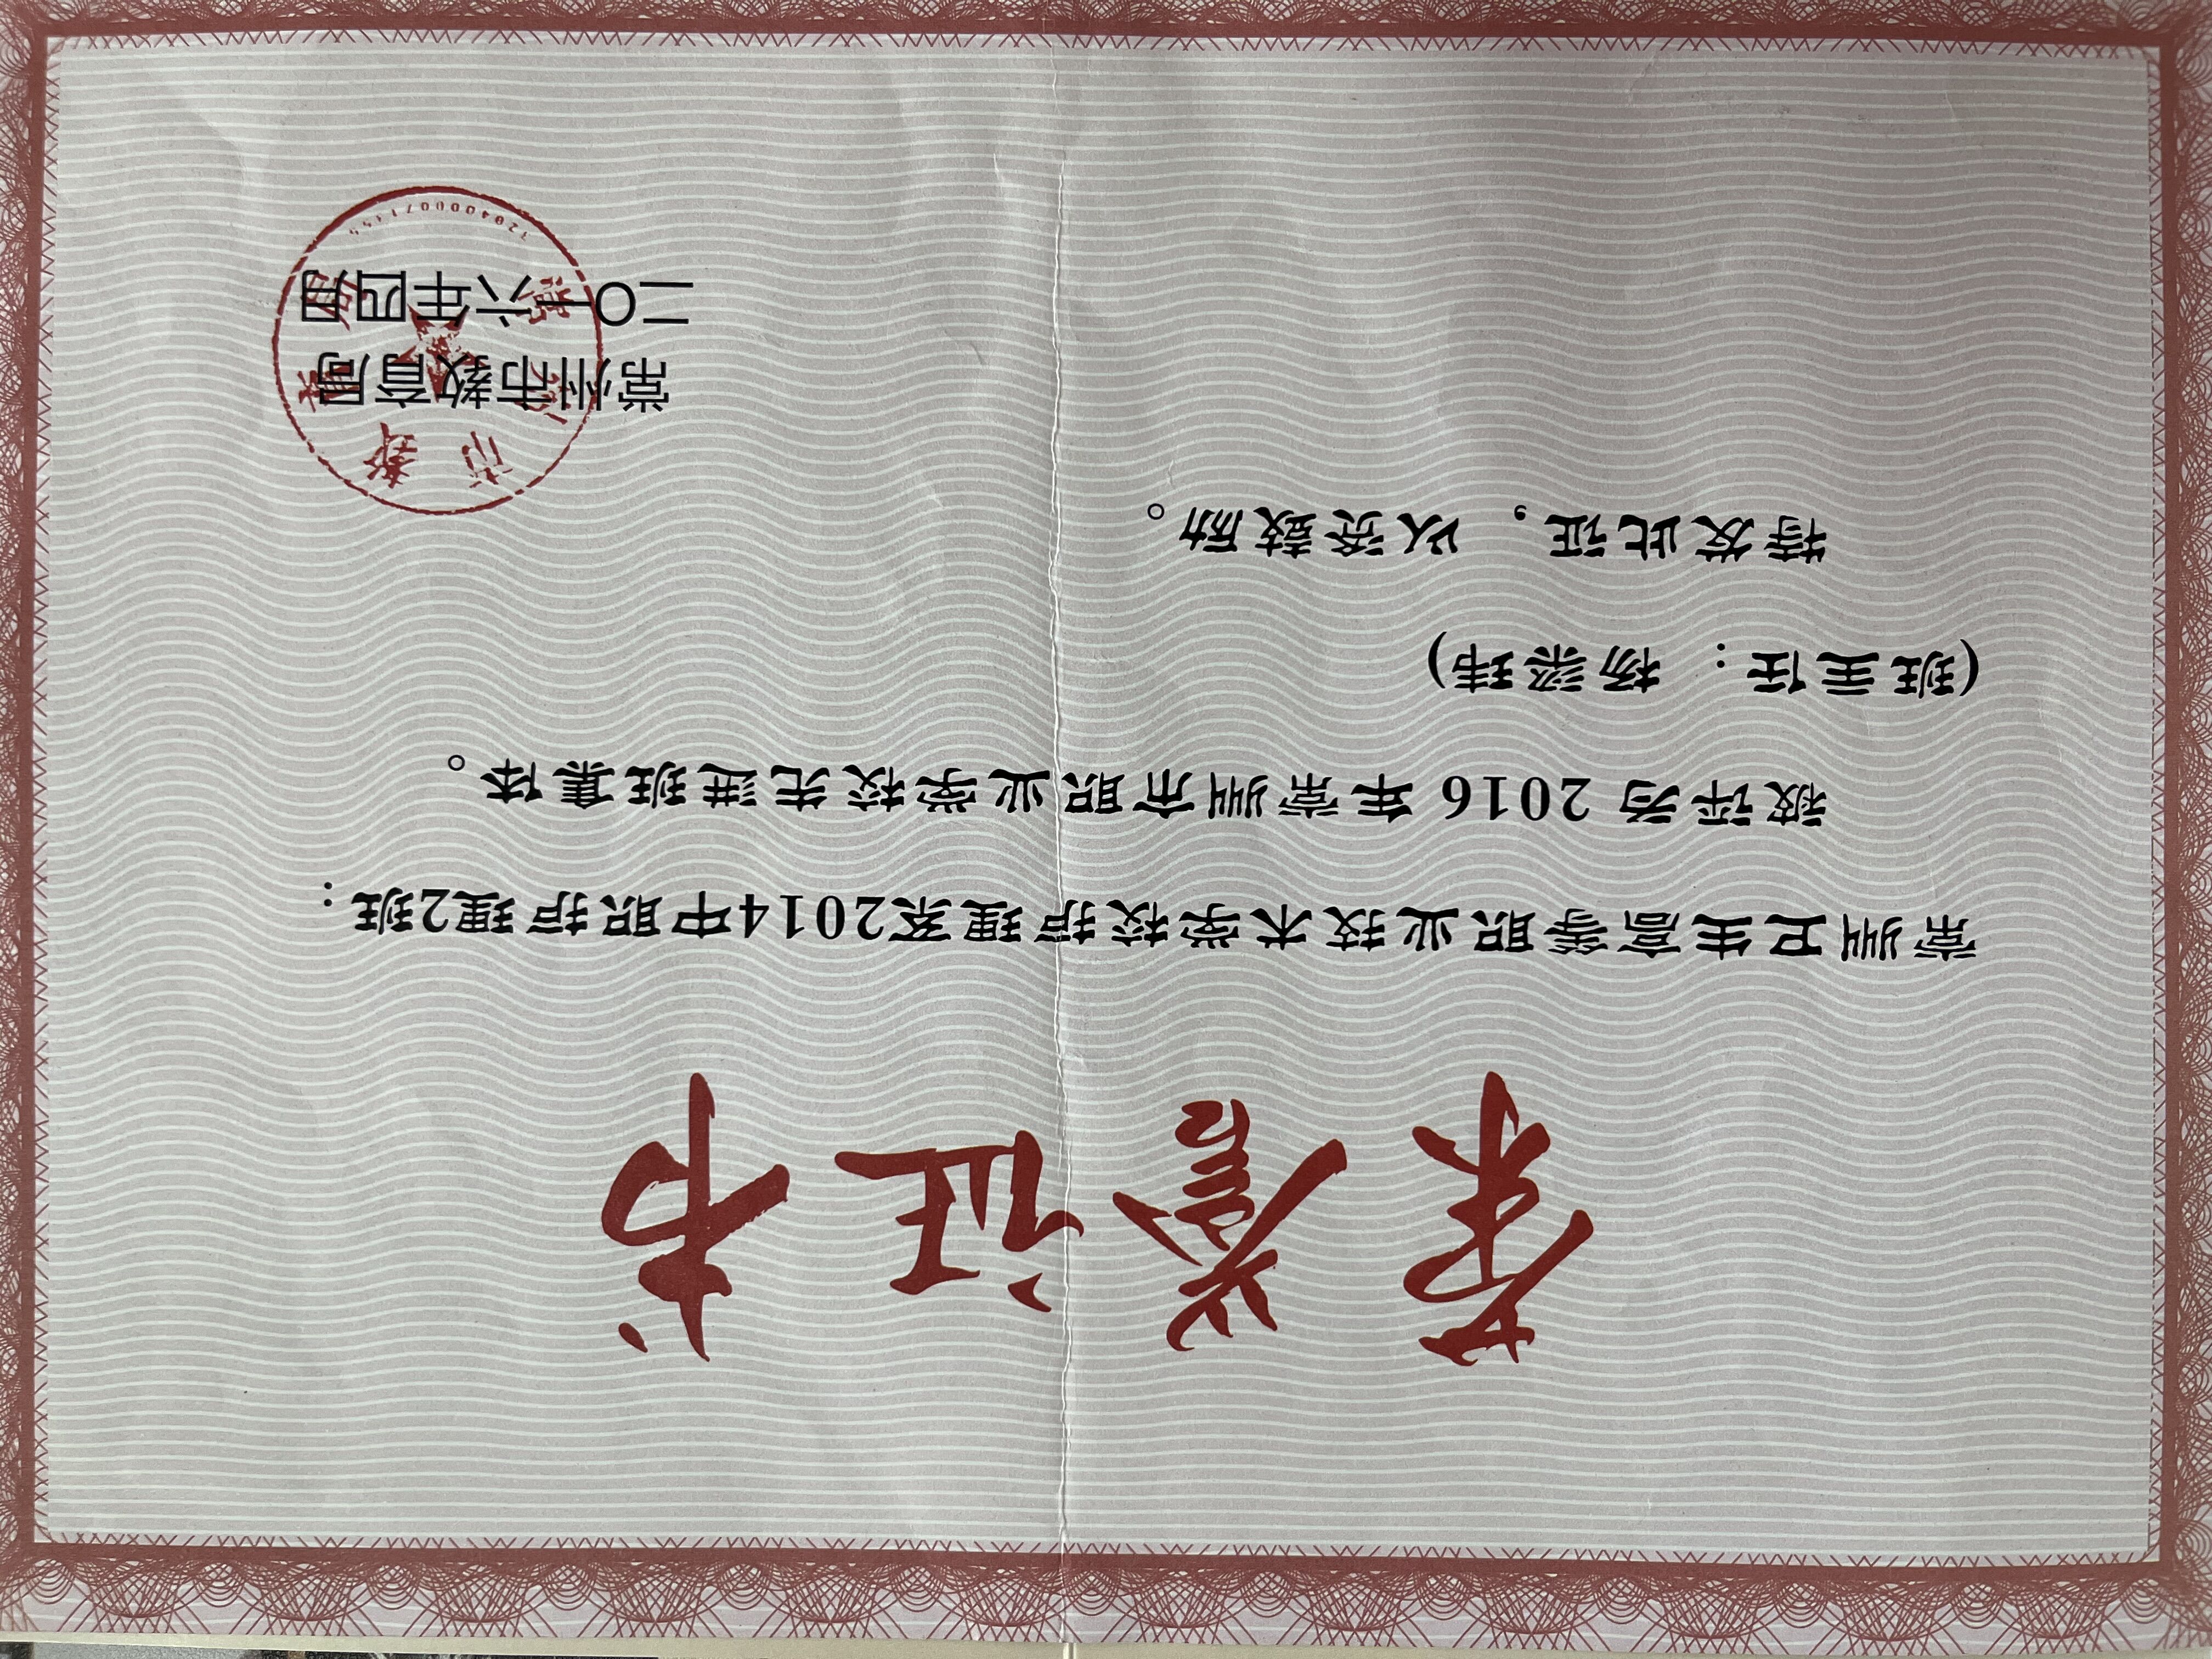 荣誉证书
常州卫生高等职业技术学校护理系2014中职护理2班：
被评为 2016 年常州市职业学校先进班集体。
(班主任： 杨梁玮)
特发此证，以资鼓励。
常州市教育局
二〇一六年四月
常州市教育局